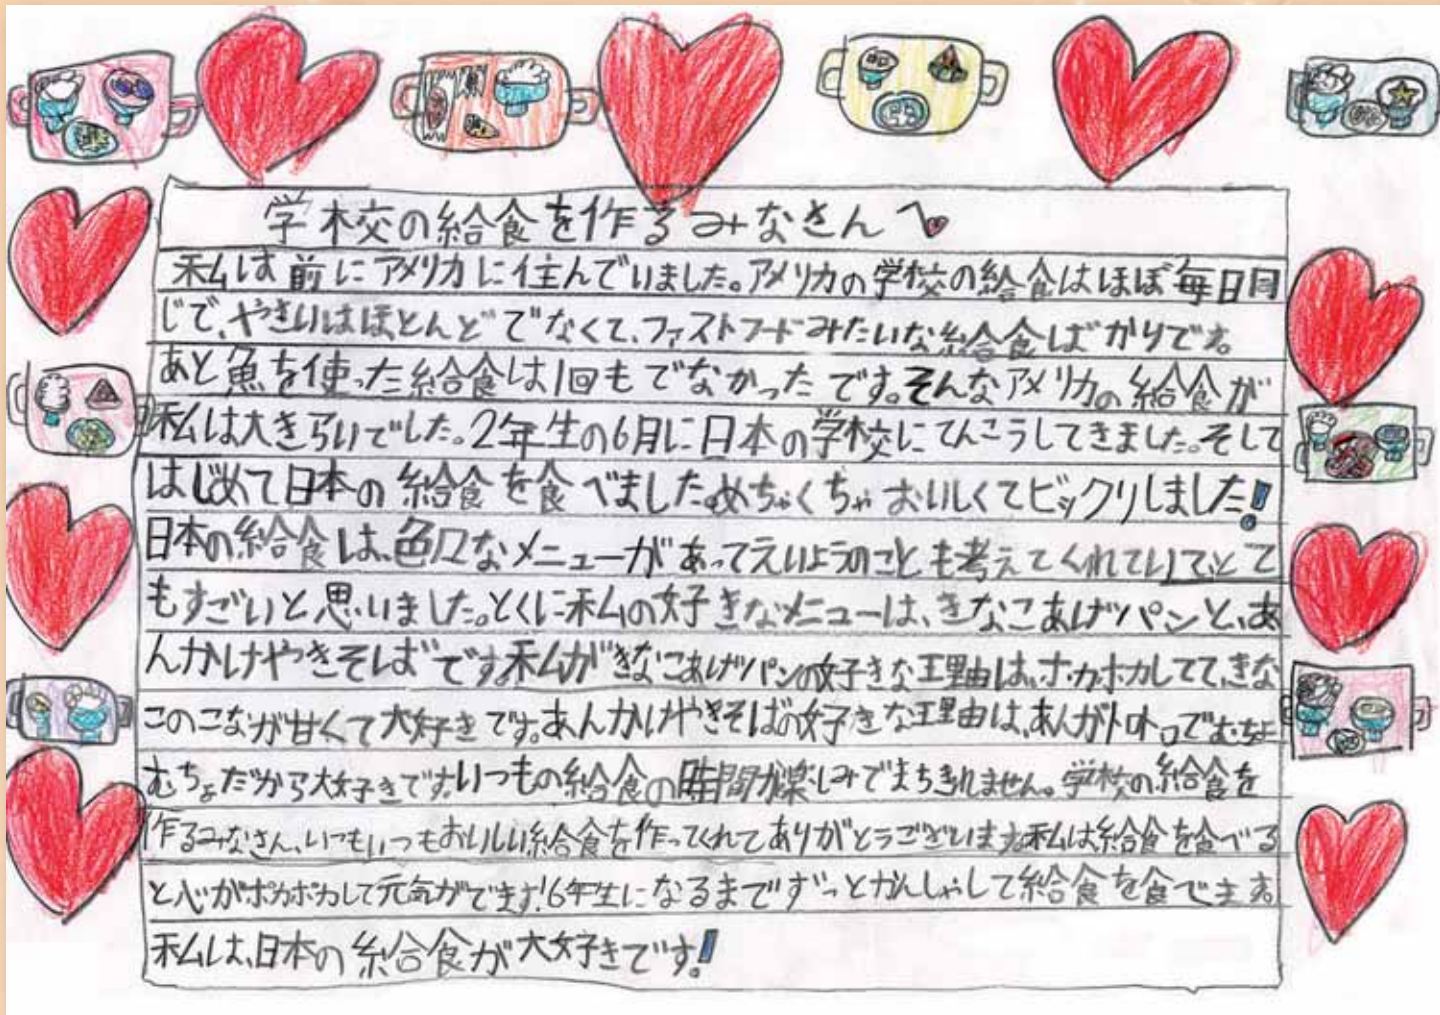 学校の給食を作るみなさんへ
私は前にアメリカに住んでいました。アメリカの学校の給食はほぼ毎日同
じで、やさいはほとんどでなくて、ファストフードみたいな給食ばかりです。
あと魚を使った給食は1回もでなかったです。そんなアメリカの給食が
私は大きらいでした。2年生の6月に日本の学校にてんこうしてきました。そして
はじめて日本の給食を食べました。めちゃくちゃおいしくてビックリしました!
日本の給食は、色々なメニューがあってえいようのことも考えてくれていて、とて
もすごいと思いました。とくに私の好きなメニューは、きなこあげパンと、あ
んかけやきそばです。私がきなこあげパンの好きな理由は、ホカホカしてて、きな
このこなが甘くて大好きです。あんかけやきそばの好きな理由は、あんがトロトロでむちょ
むちょだから大好きです。いつもの給食の時間が楽しみでまちきれません。学校の給食を
作るみなさん、いつもいつもおいしい給食を作ってくれてありがとうございます。私は給食を食べる
と心がポカポカして元気がでます!6年生になるまでずっとかんしゃして給食を食べます。
私は、日本の給食が大好きです!